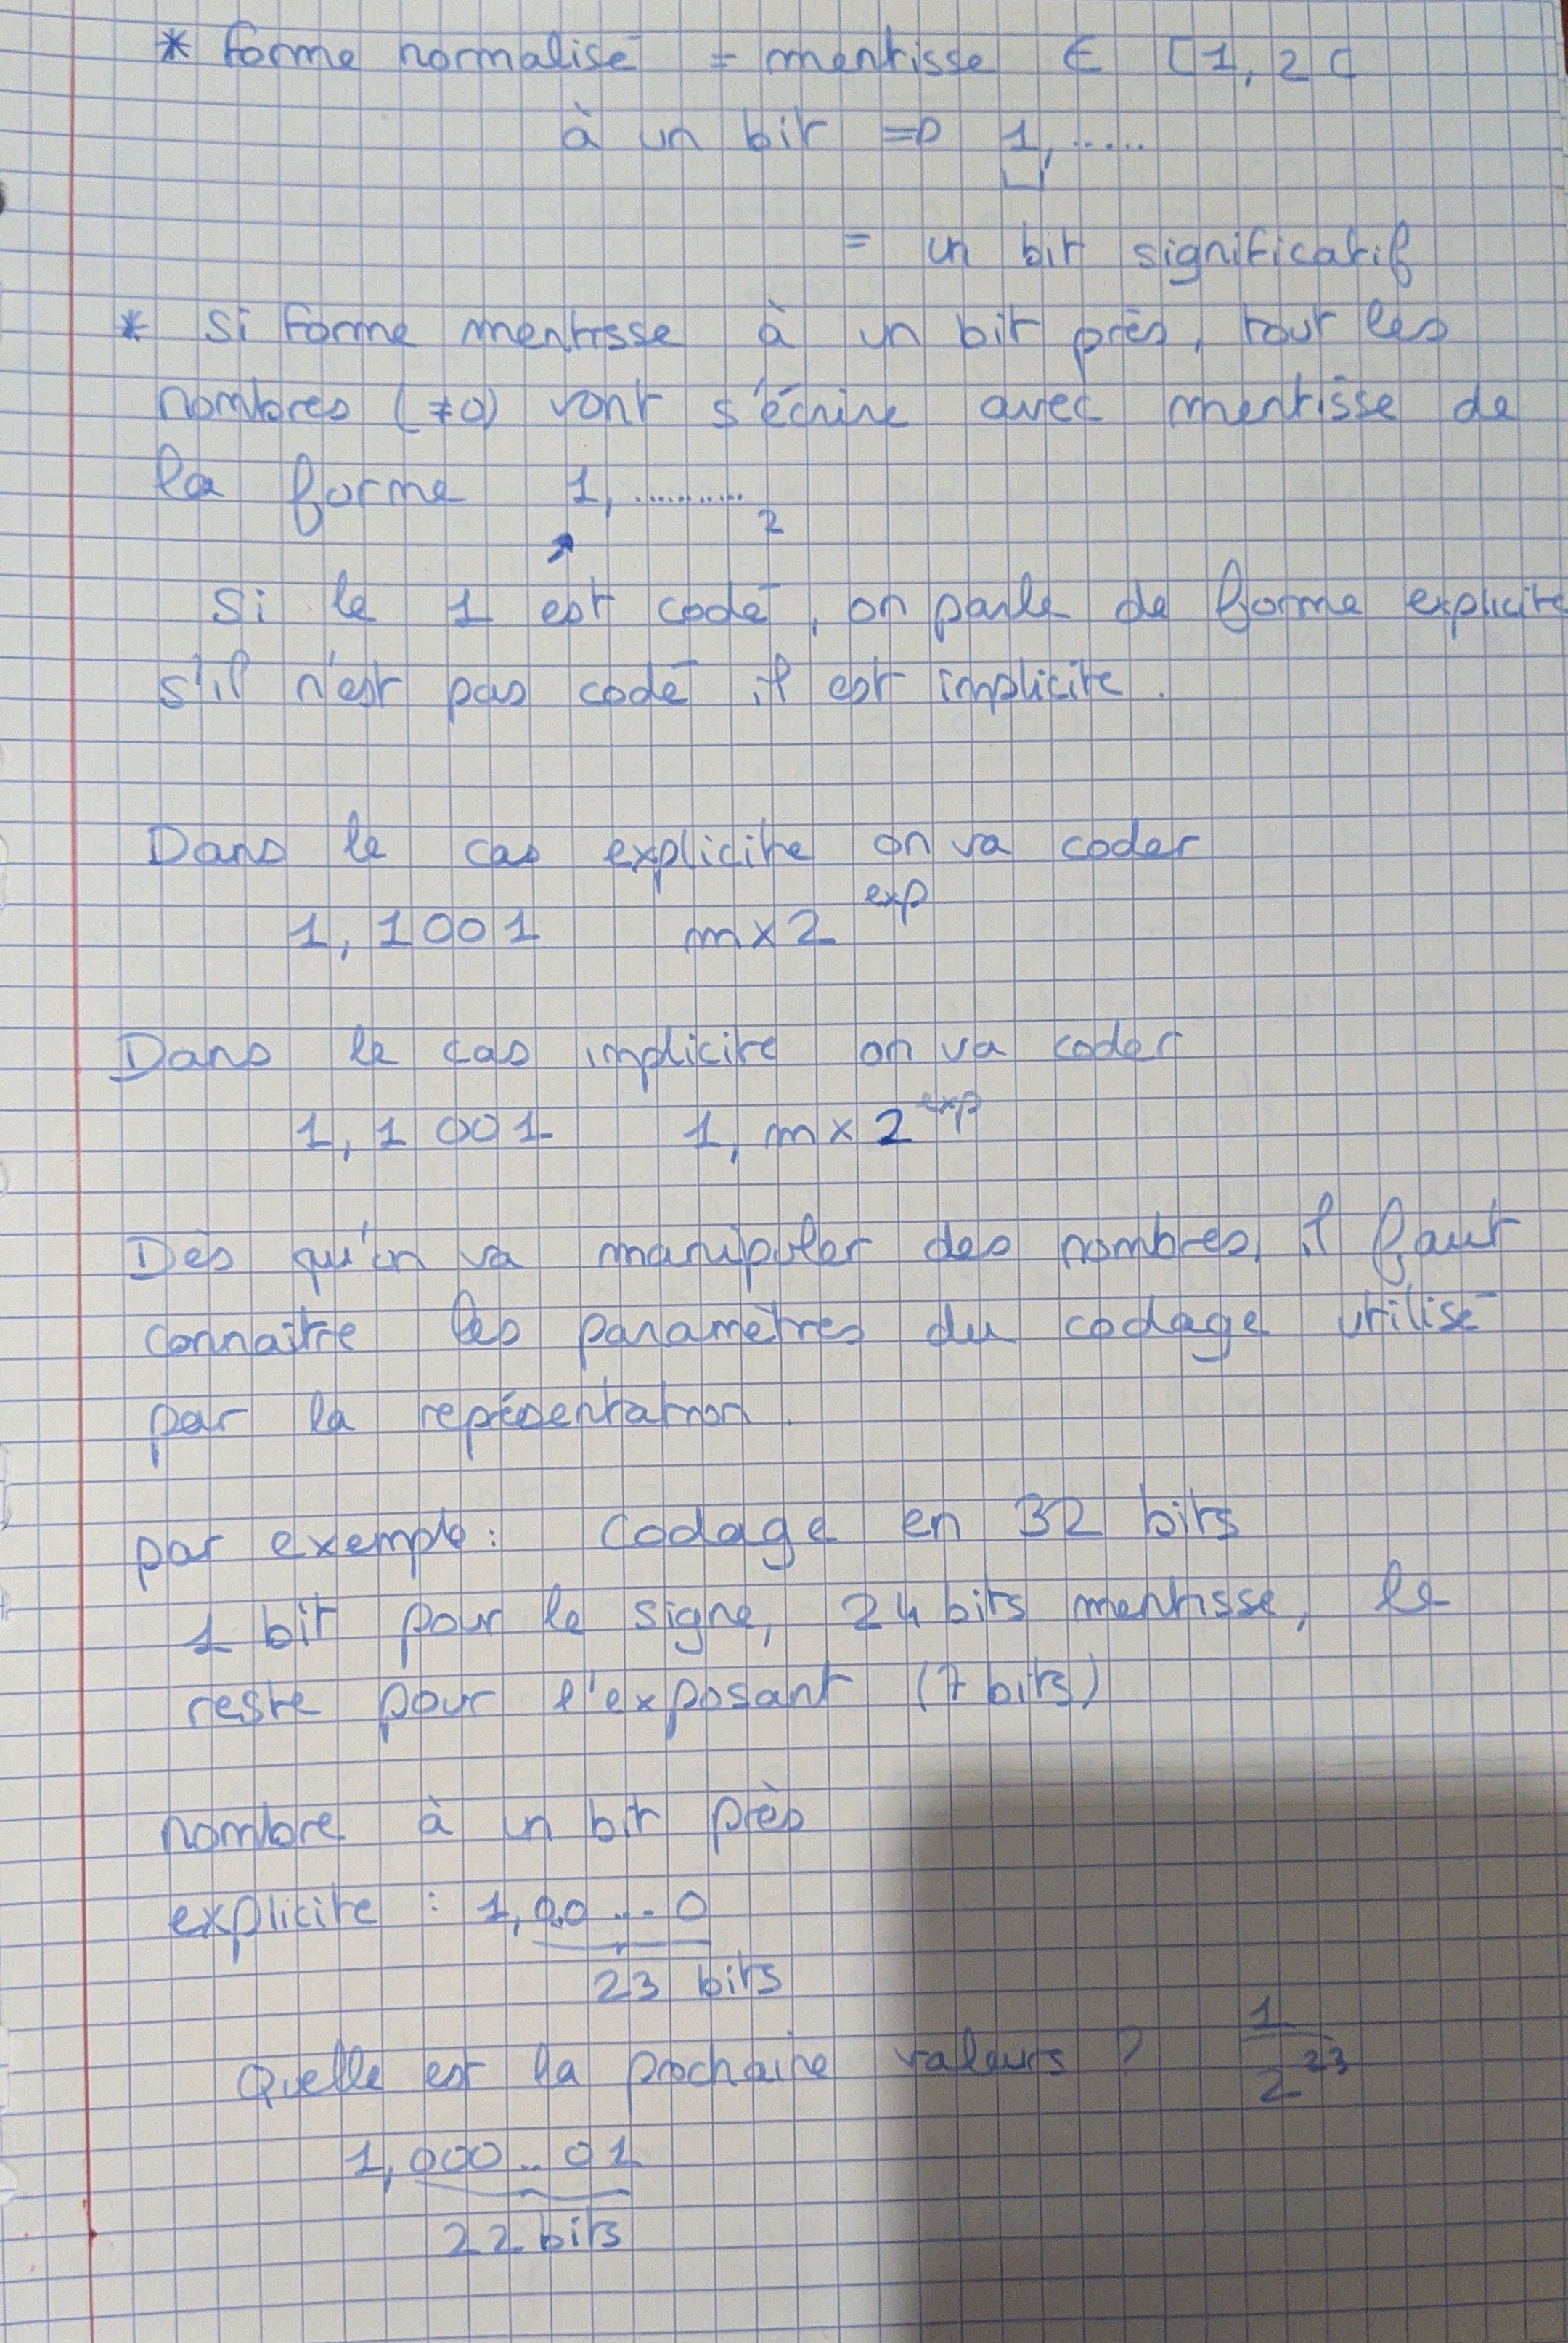 * forme normalisé = mentisse ∈ [1, 2[
à un bit => 1, .....
= un bit significatif
* Si forme mentisse à un bit près, tout les
nombres (≠0) vont s'écrire avec mentisse de
la forme 1, ........... 2
Si le 1 est codé, on parle de forme explicite
s'il n'est pas codé il est implicite.
Dans le cas explicite on va coder
1, 1001 m x 2^exp
Dans le cas implicite on va coder
1, 1001 1, m x 2^exp
Dès qu'on va manipuler des nombres, il faut
connaître les paramètres du codage utilisé
par la représentation.
par exemple : codage en 32 bits
1 bit pour le signe, 24 bits mentisse, le
reste pour l'exposant (7 bits)
nombre à un bit près
explicite : 1,00...0
23 bits
Quelle est la prochaine valeurs ? 1/2^23
1,000..01
22 bits